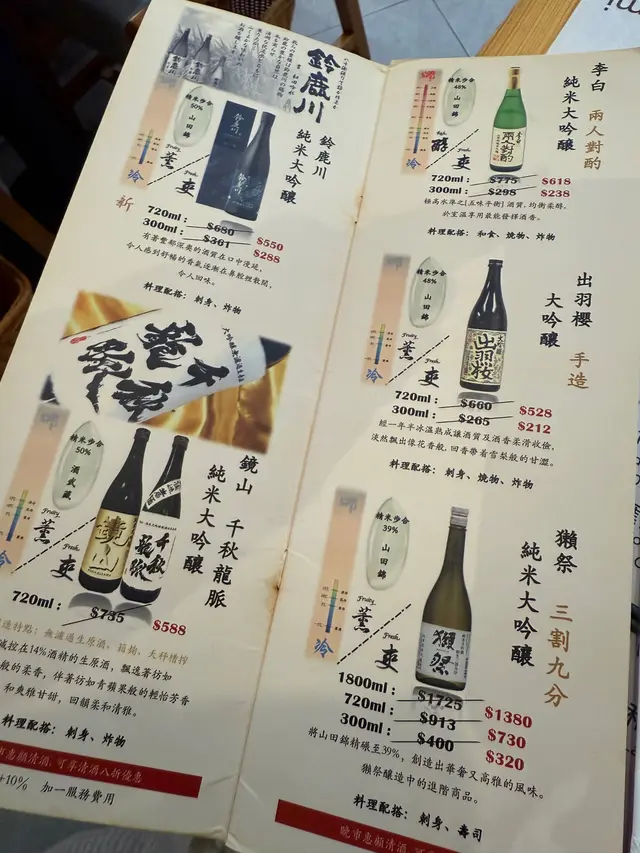 鈴鹿川
精米步合
50%
山田錦
Fruity
薰
Fresh
爽
冷
鈴鹿川
純米大吟釀
新
720ml: $680 $550
300ml: $361 $288
有著豐郁深奧的酒質在口中漫延,
令人感到舒暢的香氣逐漸在鼻輕裡散開,
令人回味。
料理配搭: 刺身、炸物
千秋龍脈
精米步合
50%
酒武藏
Fruity
薰
Fresh
爽
冷
鏡山 千秋龍脈
純米大吟釀
720ml: $735 $588
造特點: 無濾過生原酒、筒鉤、天秤槽搾
減控在14%酒精的生原酒, 飄逸著彷如
般的柔香, 伴著彷如青蘋果般的輕怡芳香
和爽雅甘甜, 回韻柔和清雅。
料理配搭: 刺身、炸物
市惠顧清酒, 可享清酒八折優惠
+10% 加一服務費用
精米步合
48%
山田錦
Rich
醇
Fresh
爽
冷
李白 兩人對酌
純米大吟釀
720ml: $775 $618
300ml: $298 $238
極高水準之[五味平衡] 酒質, 均衡柔醇。
於室溫享用最能發揮酒香。
料理配搭: 和食、燒物、炸物
精米步合
48%
山田錦
Fruity
薰
Fresh
爽
冷
出羽桜
出羽櫻 手造
大吟釀
720ml: $660 $528
300ml: $265 $212
經一年半冰溫熟成讓酒質及酒香柔滑收儉,
淡然飄出像花香般, 回香帶着雪梨般的甘澀。
料理配搭: 刺身、燒物、炸物
精米步合
39%
山田錦
Fruity
薰
Fresh
爽
冷
獺祭
獺祭 三割九分
純米大吟釀
1800ml: $1725 $1380
720ml: $913 $730
300ml: $400 $320
將山田錦精碾至39%, 創造出華奢又高雅的風味。
獺祭釀造中的進階商品。
料理配搭: 刺身、壽司
晚市惠顧清酒, 可